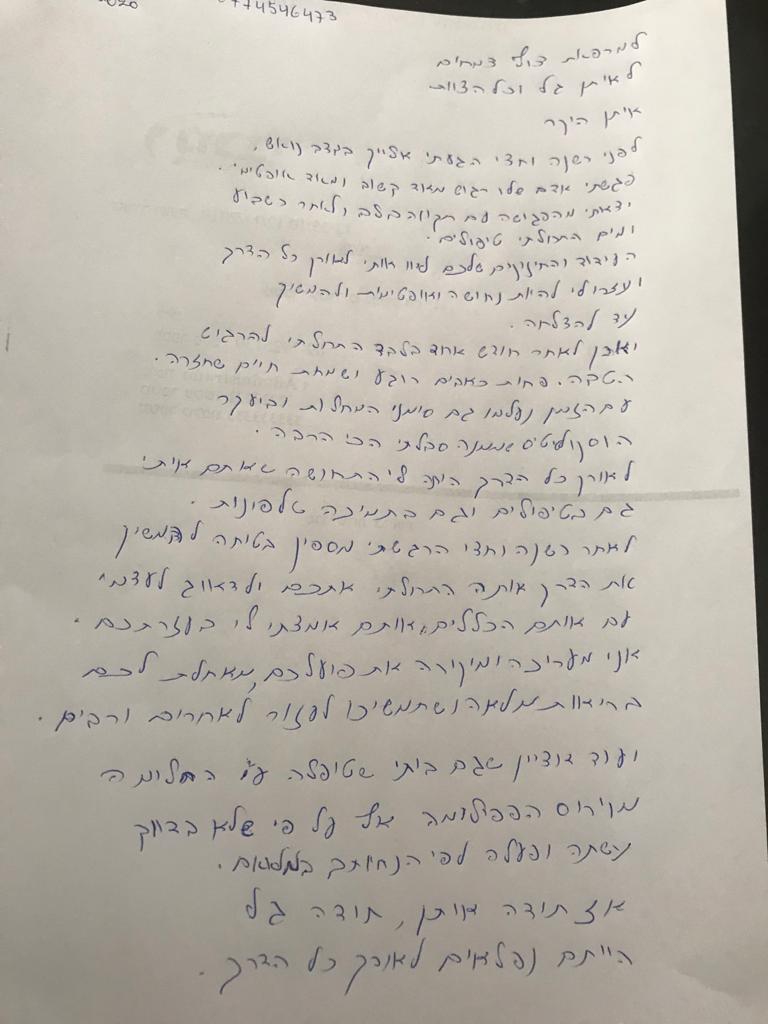 2020 0774546473
למרפאת דולב צמחים
לאיתן גל וכל הצוות
איתן היקר
לפני כשנה וחצי הגעתי אלייך במצב נואש.
פגשתי אדם שלו רגוע מאוד קשוב ומאוד אופטימי.
יצאתי מהפגישה עם תקווה בלב ולאחר כשבוע
ימים התחלתי טיפולים.
העידוד והחיזוקים שלכם ליוו אותי לאורך כל הדרך
ועזרו לי להיות נחושה ואופטימית ולהמשיך
עד להצלחה.
ואכן לאחר חודש אחד בלבד התחלתי להרגיש
הטבה. פחות כאבים רוגע ושמחת חיים שחזרה.
עם הזמן נעלמו גם סימני המחלות ובעיקר
הוסקוליטיס שממנה סבלתי הכי הרבה.
לאורך כל הדרך היתה לי התחושה שאתם איתי
גם בטיפולים וגם בתמיכה טלפונית.
לאחר כשנה וחצי הרגשתי מספיק בטוחה להמשיך
את הדרך אותה התחלתי אתכם ולדאוג לעצמי
עם אותם הכללים, אותם אימצתי לי בעזרתכם.
אני מעריכה ומוקירה את פועלכם, מאחלת לכם
בריאות מלאה ושתמשיכו לעזור לאחרים ורבים.
ועוד אציין שגם ביתי שטיפלה ע"י החלימה
מוירוס הפפילומה אף על פי שלא בדיוק
נשתה ופעלה לפי הנחיותכם במלואם.
אז תודה איתן, תודה גל
הייתם נפלאים לאורך כל הדרך.